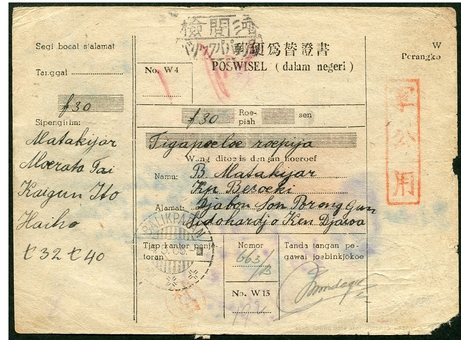 濟閲檢
郵便爲替證書
POSWISEL (dalam negeri)
Segi bocat alamat
Tanggal
No. W 4
W
Perangko
f30
f30 Roe-
piah
sen
Sipengirim:
Matakijar
Kaigun Ito
Haiho
Tigapoeloe roepija
Wang ditoelis dengan hoeroef
Nama: B. Matakijar
Kp. Besoeki
Alamat: Djabon Son Porong Gun
Sidohardjo Ken Djawa
軍公用
Tjap kantor penje-
toran
Nomor
663/B
No. W 13
Tanda tangan pe-
gawai joebinkjokoe